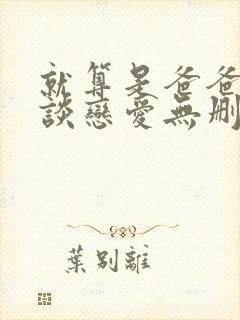 就算是爸爸
談戀愛無刪
葉別離